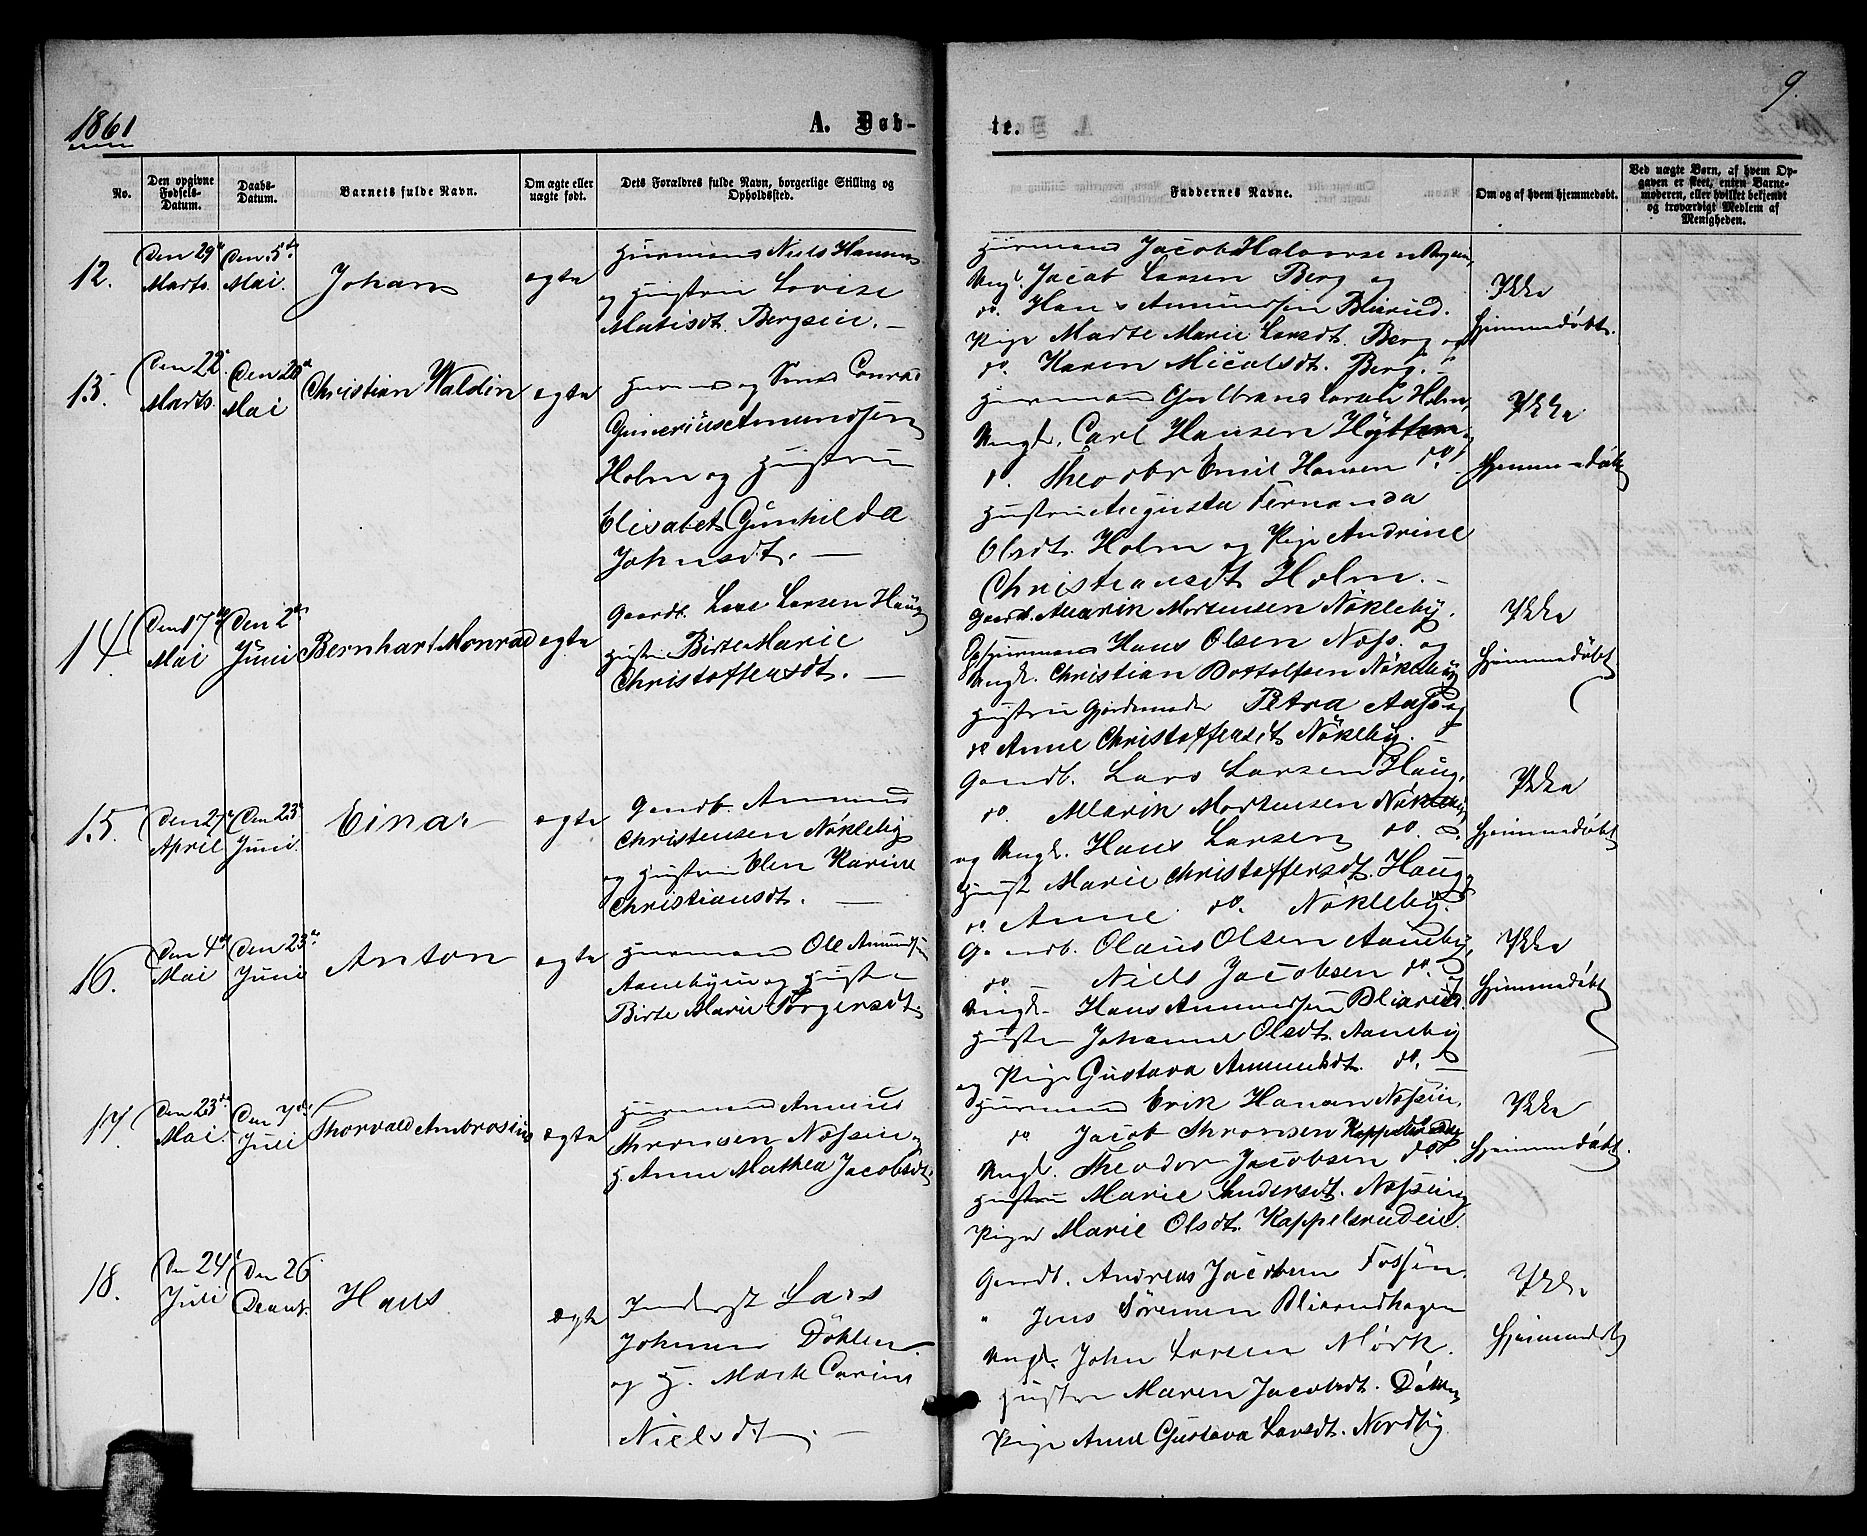 1861
A. Døb-
te.
9.
No.
Den opgivne Fødsels-Datum.
Daabs-Datum.
Barnets fulde Navn.
Om ægte eller uægte født.
Dets Forældres fulde Navn, borgerlige Stilling og Opholdssted.
Faddernes Navne.
Om og af hvem hjemmedøbt.
Ved uægte Børn, af hvem Op-
gaven er skeet, enten Barne-
moderen, eller hvilket bekjendt
og troværdigt Medlem af
Menigheden.
12.
Den 29
Marts
Den 5
Mai.
Johan
egte
Huusmand Niels Hansen
og Hustru Lovise
Matisdt. Bergseie. —
Huusmand Jacob Halvorsen
Ungk. Jacob Larsen Berg og
do. Hans Amundsen Bliarud.
Pige Marte Marie Larsdt. Berg og
do. Karen Micalsdt. Berg. —
Ikke
hjemmedøbt.
13.
Den 22
Marts
Den 20
Mai
Christian Waldin
egte
og Smed Conrad
Amundsen
Holm og Hustru
Elisabet Gunhilda
Johnsdt. —
Huusmand Gulbrand Larsen Holm,
Ungk. Carl Hansen
Theodor Emil Hansen do.
Hustru Augusta Fernanda
Olsdt. Holm og Pige Andrine
Christiansdt Holm. —
Ikke
hjemmedøbt
14.
Den 17
Mai
Den 2
Juni
Bernhart Monrad
egte
Gaardb. Lars Larsen Haug
Hustru Birte Marie
Christoffersdt. —
Gaardb. Marik Mortensen Nøkleby.
Huusmand Hans Olsen Næss. og
Ungk. Christian Bottolfsen Nøkleby
Hustru Gjordemoder Petra Aas og
do Anne Christoffersdt Nøkleby. —
Ikke
hjemmedøbt
15.
Den 27
April
Den 23
Juni.
Einar
egte
Gaardb. Amund
Christensen Nøkleby
og Hustru Elen Karine
Christiansdt. —
Gaardb. Lars Larsen Haug.
do. Marik Mortensen Nøkleby
og Ungk. Hans Larsen do.
Hust Marie Christoffersdt. Haug
do Anne do. Nøkleby.
Ikke
hjemmedøbt
16.
Den 4
Mai
Den 23
Juni
Anton
egte
Huusmand Ole Amundsen
Aanebyeie og Hustru
Birte Marie Torgersdt.
Gaardb. Olaus Olsen Aaneby
do — Niels Jacobsen do.
Ungk. Hans Amundsen Bliarud.
Hustru Johanne Olsdt. Aaneby
og Pige Gustava Amundsdt. do. —
Ikke
hjemmedøbt
17.
Den 23
Mai.
Den 7
Juli
Thorvald Ambrosius
ægte
Huusmand Amund
Thronsen Næsseie og
H. Anne Mathea Jacobsdt.
Huusmand Erik Hansen Næsseie.
do Jacob Thronsen
Ungk. Theodor Jacobsen do
Hustru Marie Andersdt. Næsseie og
Pige Marie Olsdt. Kappelsrudeie.
Ikke
hjemmedøbt.
18.
Den 24
Juli
Den 26
Hans
ægte
Inderst Lars
Johnsen Døhlen
og H. Marte Carine
Nielsdt. —
Gaardb. Andreas Jacobsen Fossen.
" Jens Sørensen Bliarudhagen
Ungk. John Larsen Mørk.
Hustru Maren Jacobsdt. Døhlen
Pige Anne Gustava Larsdt. Nordby.
Ikke
hjemmedøbt